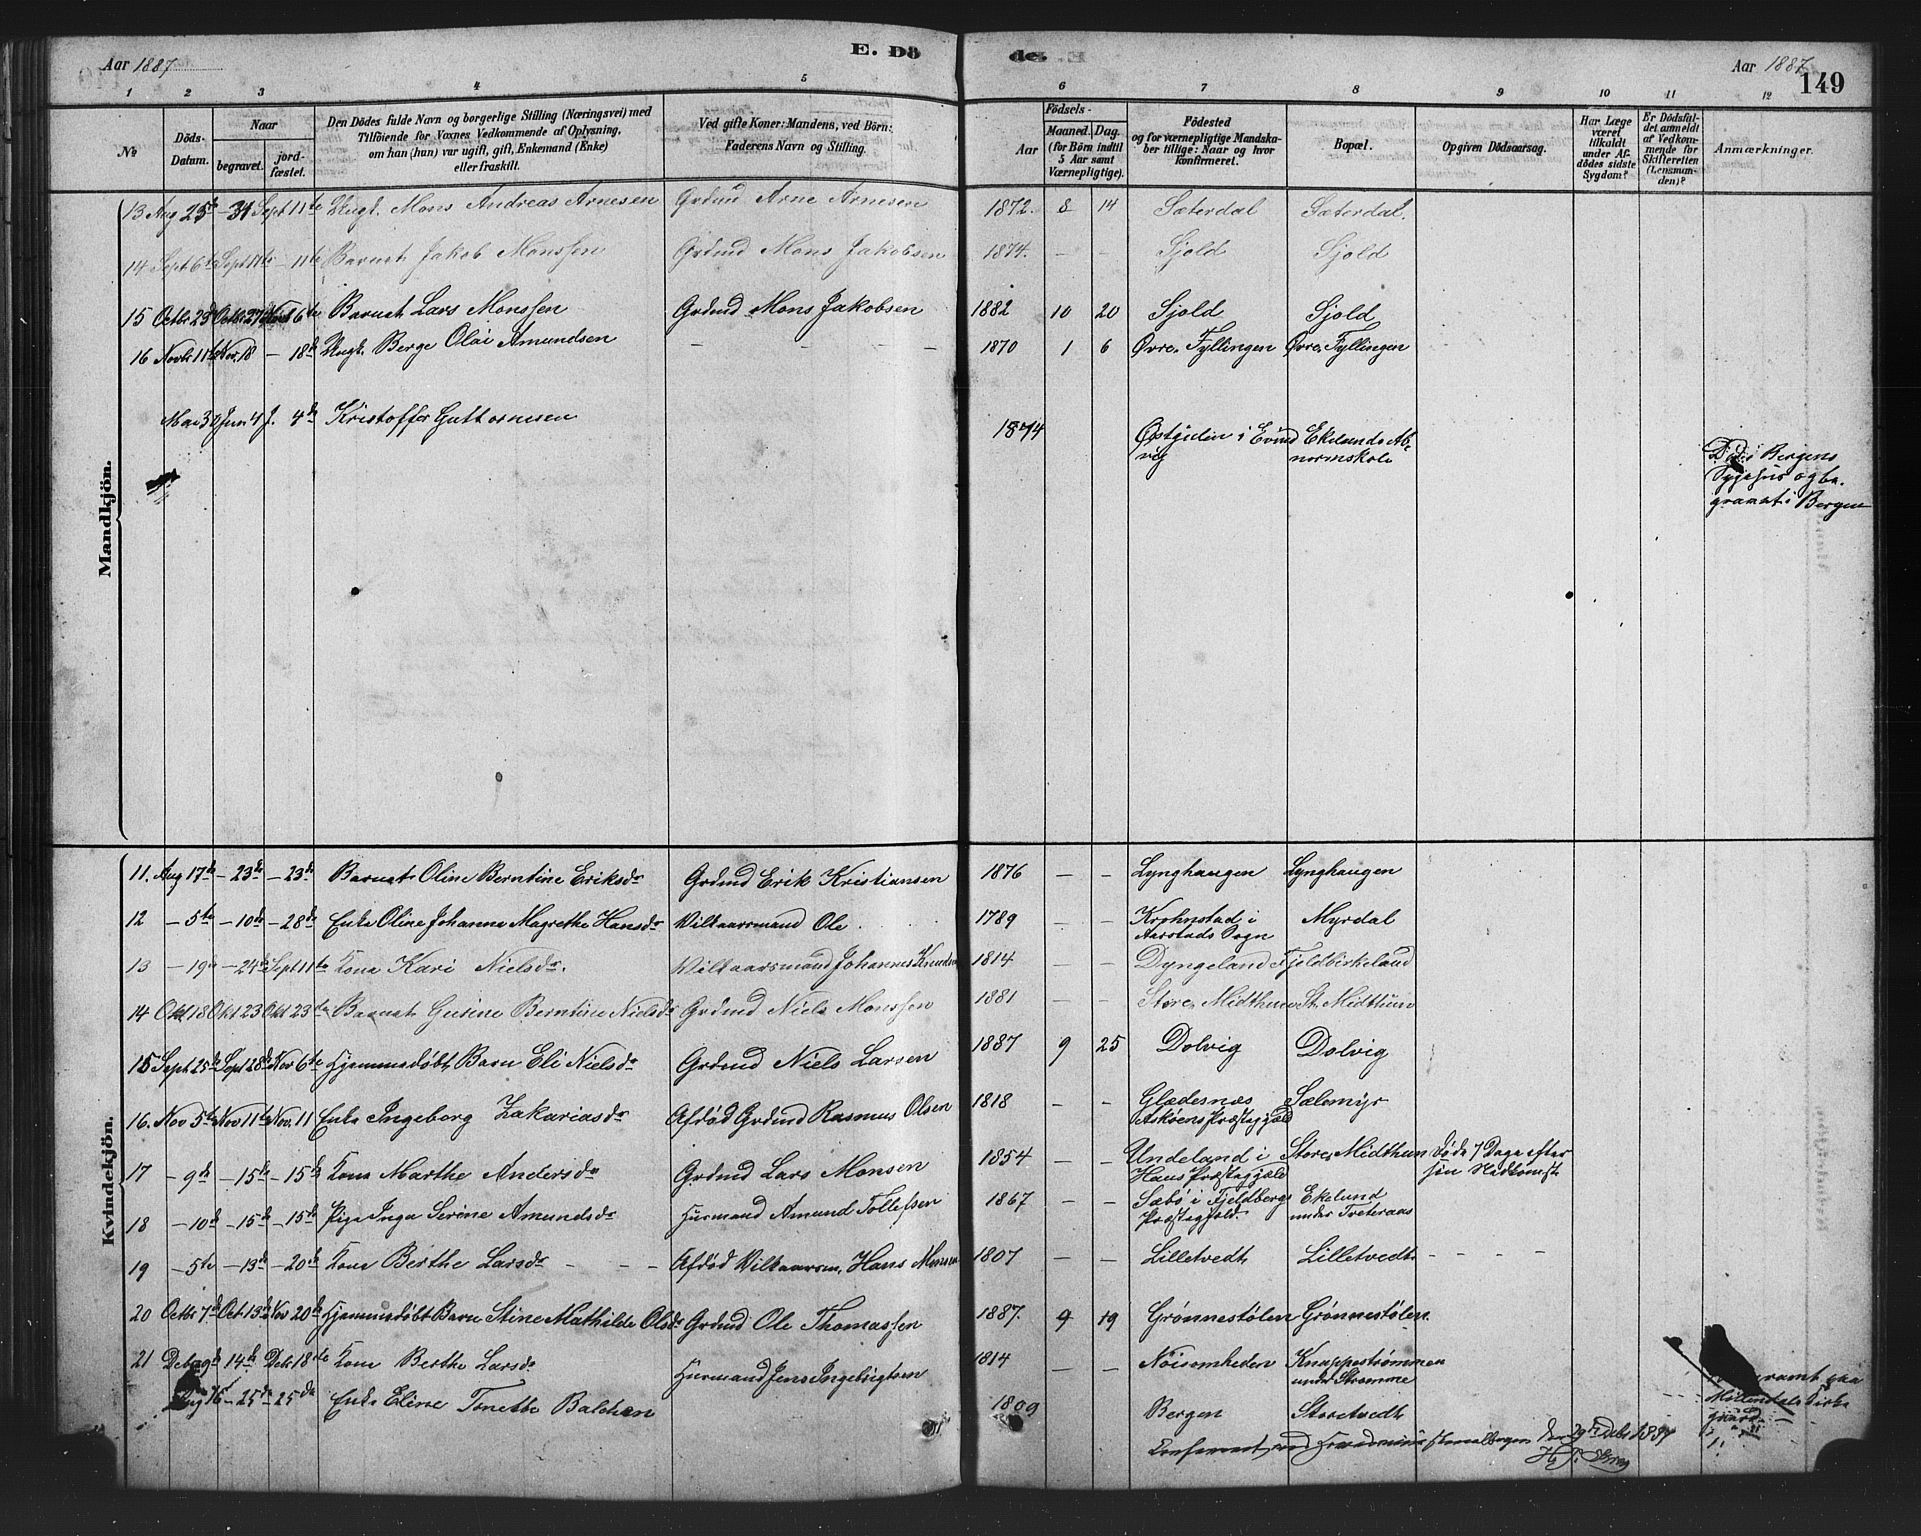 Aar 1887
E. Dö
de. E
Aar 1887
149
1 2 3 4 5 6 7 8 9 10 11 12
No
Döds-Datum.
Naar
begravet.
jord-fæstet.
Den Dödes fulde Navn og borgerlige Stilling (Næringsvei) med
Tilföiende for Voxnes Vedkommende af Oplysning,
om han (hun) var ugift, gift, Enkemand (Enke)
eller fraskilt.
Ved gifte Koner: Mandens, ved Börn:
Faderens Navn og Stilling.
Födsels-
Aar
Maaned. Dag.
(for Börn indtil
5 Aar samt
Værnepligtige).
Födested
og for værnepligtige Mandska-
ber tillige: Naar og hvor
konfirmeret.
Bopæl.
Opgiven Dödsaarsag.
Har Læge
været
tilkaldt
under Af-
dödes sidste
Sygdom?
Er Dödsfal-
det anmeldt
af Vedkom-
mende for
Skifteretten
(Lensman-
den)?
Anmærkninger.
Mandkjön.
13 Aug 25de – 31 Sept 11te Ungk. Mons Andreas Arnesen Grdmd Arne Arnesen 1872. 8 14 Sæterdal Sæterdal.
14 Sept 6te Sept 11te – 11te Barnet Jakob Monssen Grdmd Mons Jakobsen 1874. – – Sjold Sjold
15 Octbr 23de Octbr 27de 6te Barnet Lars Monssen Grdmd Mons Jakobsen 1882 10 20 Sjold Sjold
16 Novbr 11te Nov. 18 – 18de Ungk. Berge Olai Amundsen – – – – 1870 1 6 Øvre Fyllingen Øvre Fyllingen
Mai 30 Juni 4 J. 4de Kristoffer Guttormsen 1874 i Eivind Ekelunds Ab-
vig normskole
Død i Bergens
Sygehus og be-
gravet i Bergen
Kvindekjön.
11. Aug 17de – 23de – 23de Barnet Oline Berntine Eriksdr Grdmd Erik Kristiansen 1876 – – Lynghaugen Lynghaugen
12 – 5te – 10de – 28de Enke Oline Johanna Magrethe Hansdr Vilkaarsmand Ole 1789 – – Krohnstad i Myrdal
Aarstads Sogn
13 – 19de – 24de Sept 11te Kona Kari Nielsdr. Vilkaarsmand Johannes Knudsen 1814 – – Dyngeland Fjeldbirkeland
14 Okt 18 Okt 23 Okt 23de Barnet Gusine Berntine Nielsdr Grdmd Niels Monssen 1881 – – Store Midthun St. Midthun
15 Sept 25de Sept 28de Nov 6te Hjemmedøbt Barn Eli Nielsdr Grdmd Niels Larsen 1887 9 25 Dolvig Dolvig
16. Nov 5te Nov 11te Nov. 11 Enke Ingeborg Zakariasdr Afdød Grdmd Rasmus Olsen 1818 – – Glædesnæs Sælemyr
Askøens Præstegjæld
17 – 9de – 15de – 15de Kona Marthe Andersdr Grdmd Lars Monsen 1854 – – Undeland i Store Midthun Døde 7 Dage efter
Haus Præstegjæld sin Nedkomst
18 – 10de – 15de – 15de Pige Inga Serine Amundsdr Husmand Amund Tollefsen 1867 – – Sæbø i Fjeldbergs Ekelund
Præstegjeld. under Tveteraas
19 – 5te – 13de – 20de Kona Berthe Larsdr – – – Afdød Vilkaarsm. Hans Monsen 1807 – – Lilletvedt Lilletvedt – – – –
20 Octbr 7de Oct. 13de Nov 20de Hjemmedøbt Barn Stine Mathilde Olsdr Grdmd Ole Thomassen 1887. 9 19 Grønnestølen Grønnestølen.
21 Deb 9de 14de Debr 18de Kona Berthe Larsdr Husmand Jens Ingebrigtsen 1814 – – Nøisomheden Knappestrømmen
under Strømme
Aug 15 – 25de – 25de Enke Eline Tonette Balchen 1809 Bergen Storetvedt
Begravet paa
Møllendals Kirke-
gaard
Konfereret med den 29de Debr 1887